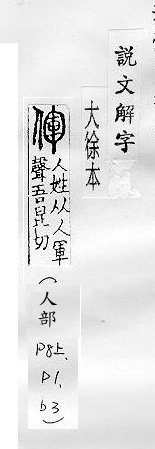 說文解字
大徐本
㑮
人姓从人軍
聲吾昆切
（人部
P8上、
P1、
b3）